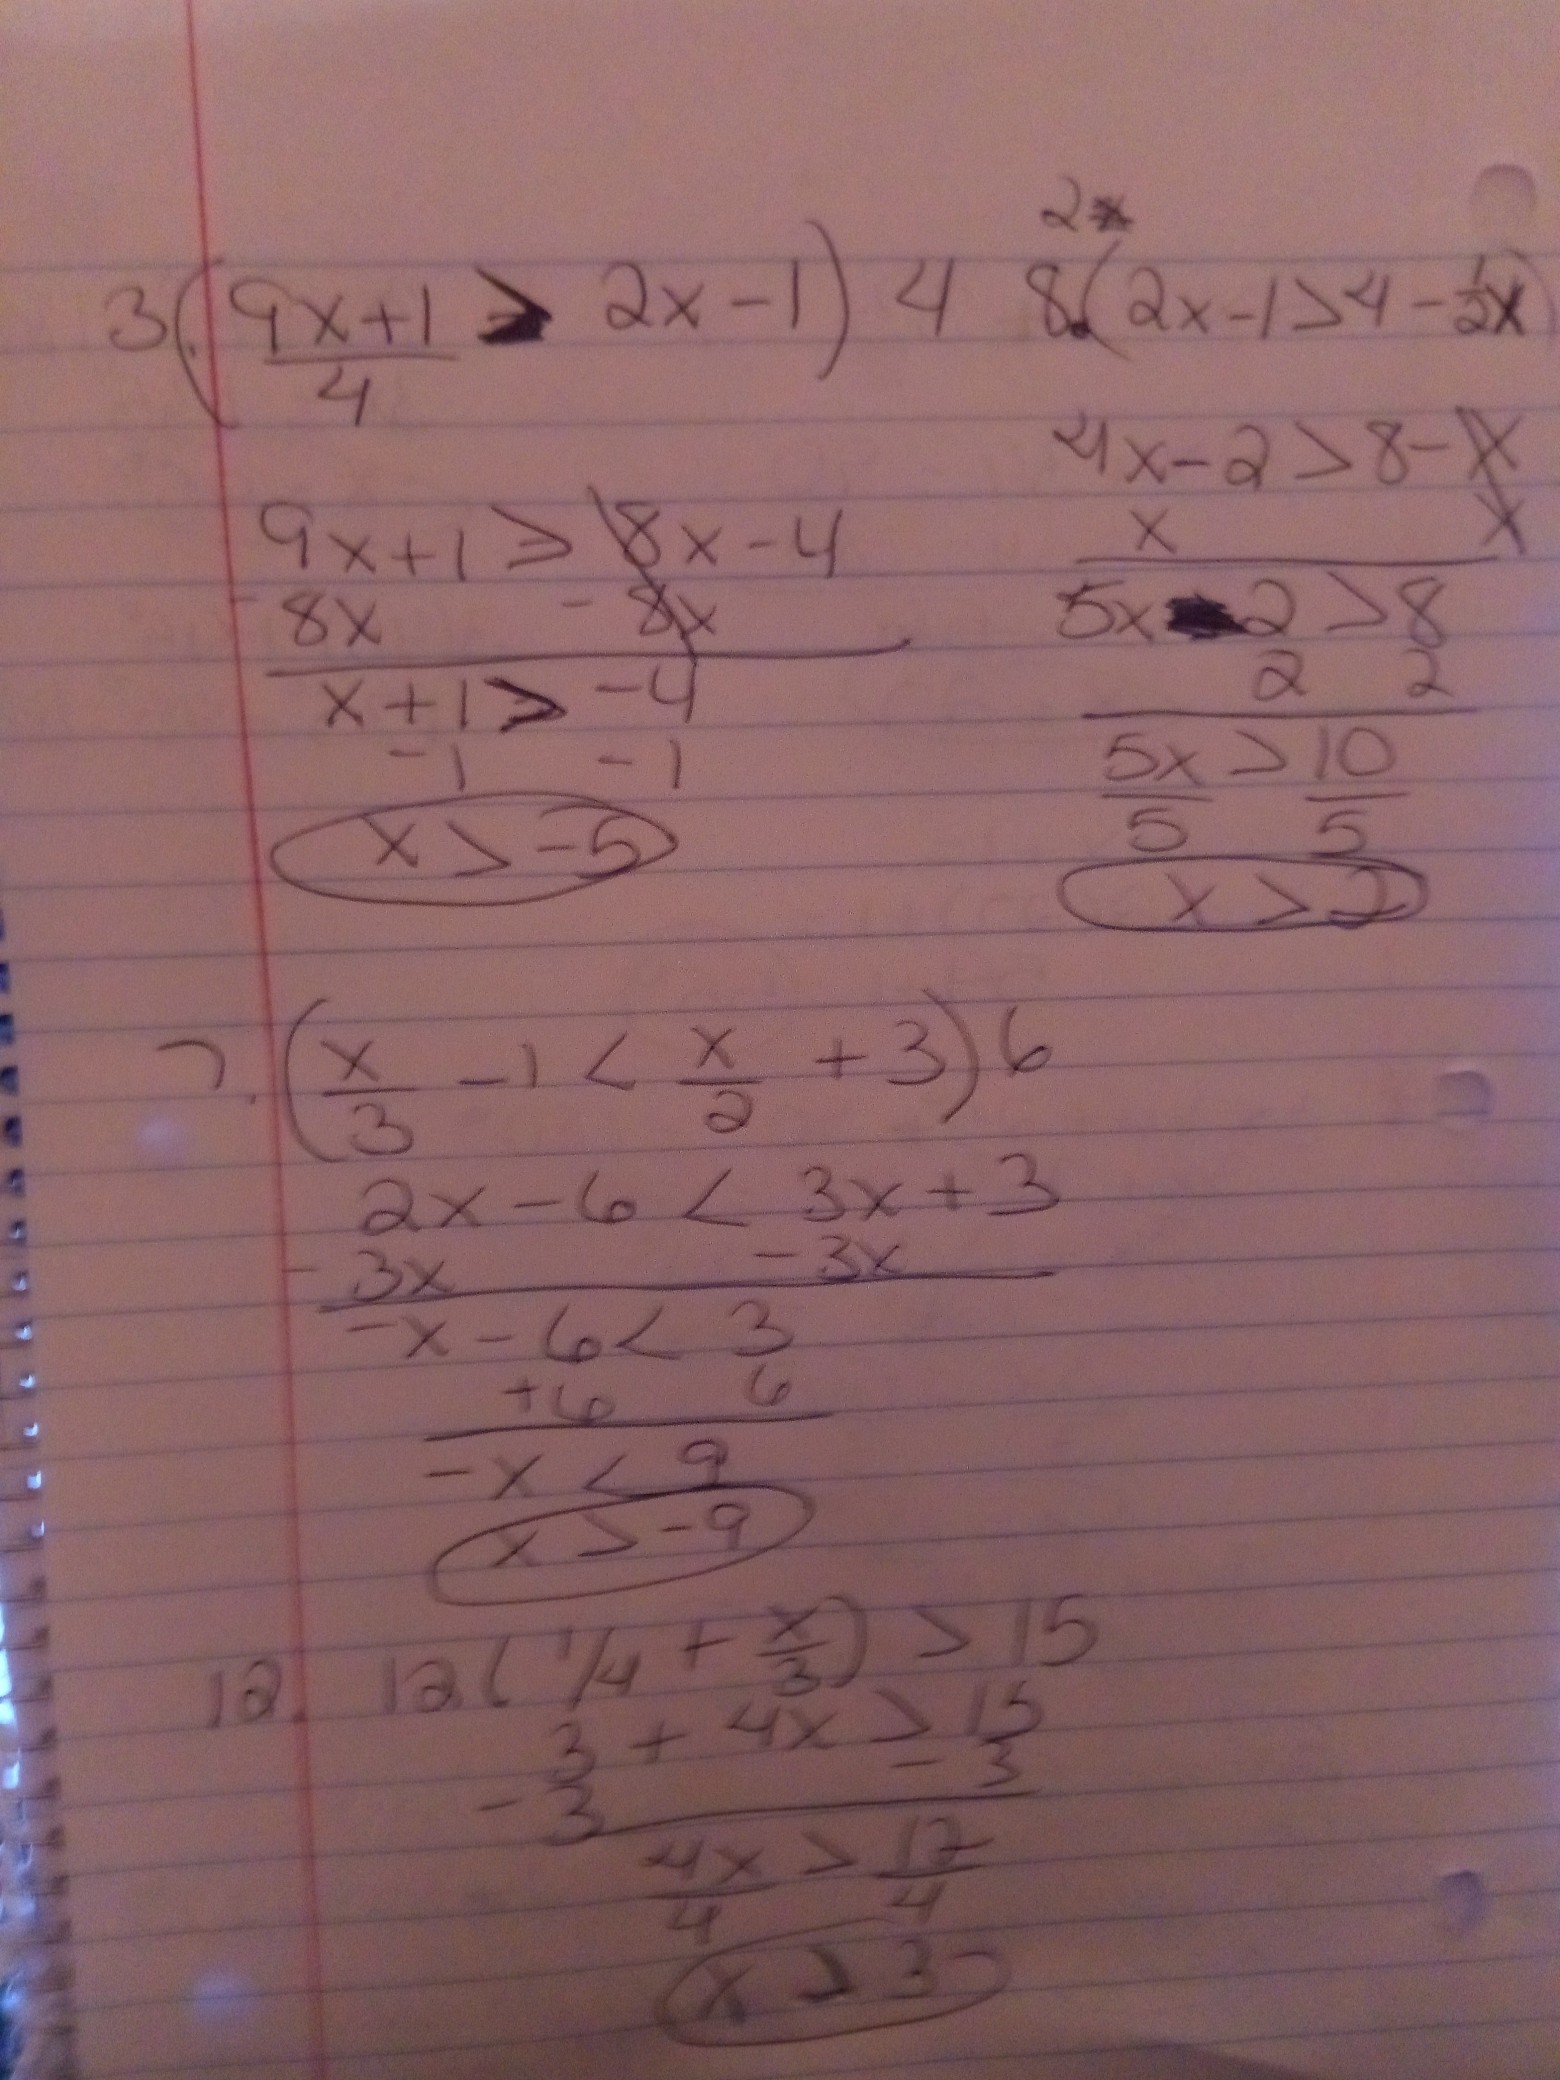 3. (9x+1/4 > 2x-1) 4
9x+1 ≥ 8x-4
-8x -8x
x+1 > -4
-1 -1
x > -5
2
8. (2x-1>4-1/2x)
4x-2>8-x
x x
5x-2>8
2 2
5x > 10
5 5
x > 2
7. (x/3 -1 < x/2 +3) 6
2x-6 < 3x+3
-3x -3x
-x-6< 3
+6 6
-x < 9
x > -9
12. 12(1/4 + x/3) > 15
3 + 4x > 15
-3 -3
4x > 12
4 4
x > 3